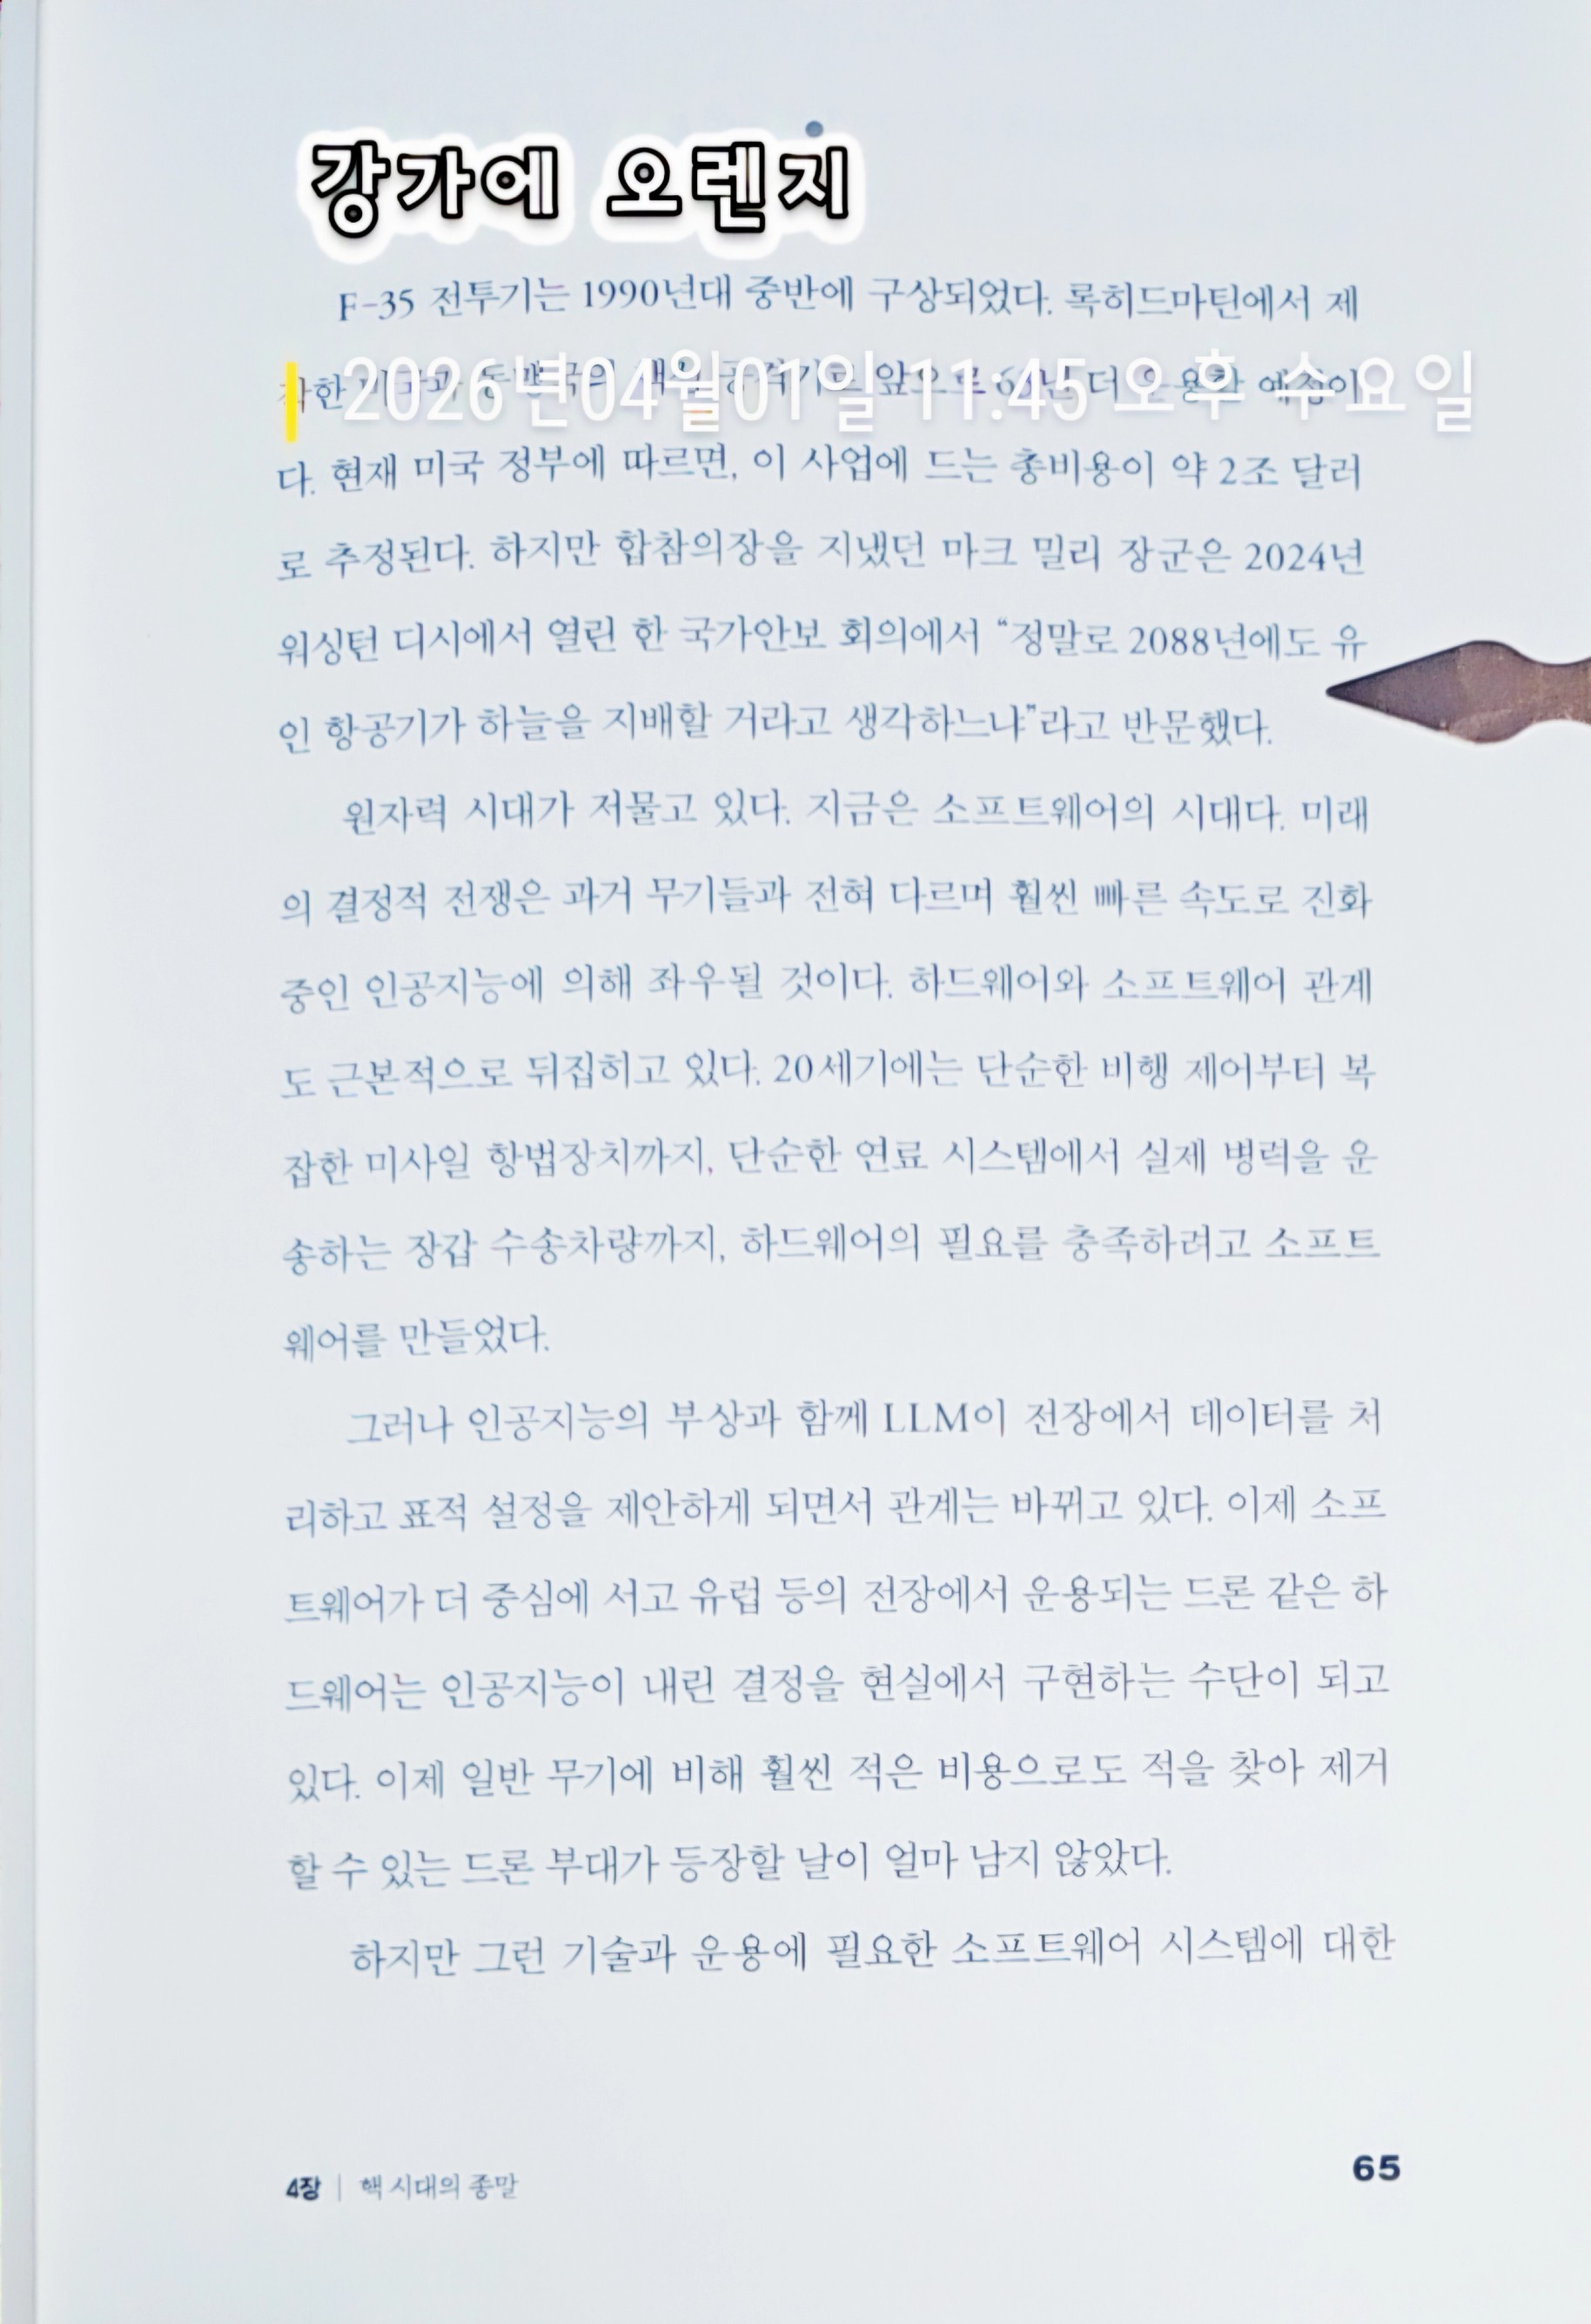 강가에 오렌지
F-35 전투기는 1990년대 중반에 구상되었다. 록히드마틴에서 제
2026년04월01일 11:45 오후 수요일
한 앞으로 더 예정이
다. 현재 미국 정부에 따르면, 이 사업에 드는 총비용이 약 2조 달러
로 추정된다. 하지만 합참의장을 지냈던 마크 밀리 장군은 2024년
워싱턴 디시에서 열린 한 국가안보 회의에서 “정말로 2088년에도 유
인 항공기가 하늘을 지배할 거라고 생각하느냐”라고 반문했다.
원자력 시대가 저물고 있다. 지금은 소프트웨어의 시대다. 미래
의 결정적 전쟁은 과거 무기들과 전혀 다르며 훨씬 빠른 속도로 진화
중인 인공지능에 의해 좌우될 것이다. 하드웨어와 소프트웨어 관계
도 근본적으로 뒤집히고 있다. 20세기에는 단순한 비행 제어부터 복
잡한 미사일 항법장치까지, 단순한 연료 시스템에서 실제 병력을 운
송하는 장갑 수송차량까지, 하드웨어의 필요를 충족하려고 소프트
웨어를 만들었다.
그러나 인공지능의 부상과 함께 LLM이 전장에서 데이터를 처
리하고 표적 설정을 제안하게 되면서 관계는 바뀌고 있다. 이제 소프
트웨어가 더 중심에 서고 유럽 등의 전장에서 운용되는 드론 같은 하
드웨어는 인공지능이 내린 결정을 현실에서 구현하는 수단이 되고
있다. 이제 일반 무기에 비해 훨씬 적은 비용으로도 적을 찾아 제거
할 수 있는 드론 부대가 등장할 날이 얼마 남지 않았다.
하지만 그런 기술과 운용에 필요한 소프트웨어 시스템에 대한
4장 | 핵 시대의 종말
65